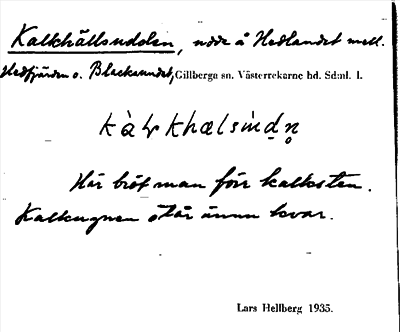 Kalkhällsudden, udde å Hedlandet mell.
Hedfjärden o. Blackasundet, Gillberga sn. Västerrekarne hd. Sdml. l.
Här bröt man förr kalksten.
Kalkugnen står ännu kvar.
Lars Hellberg 1935.